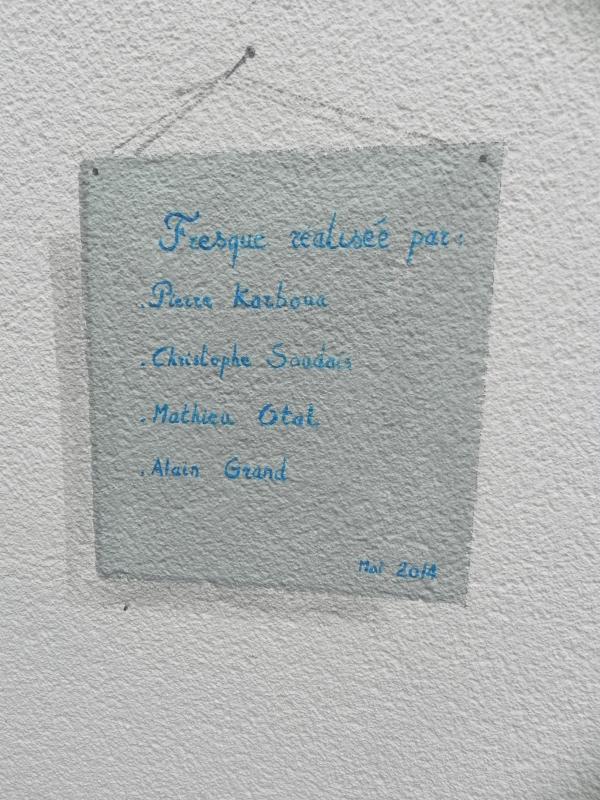 Fresque realiseé par:
. Pierre Karboua
. Christophe Saudais
. Mathieu Otal
. Alain Grand
Mai 2014